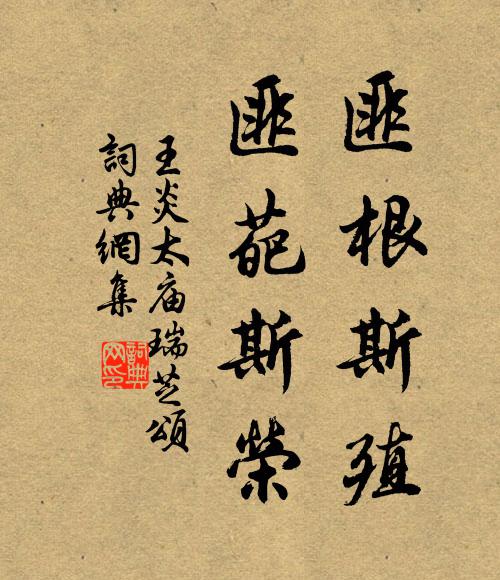 匪根斯殖
匪葩斯榮
王炎太庙瑞芝頌
詞典網集
詞典
网印